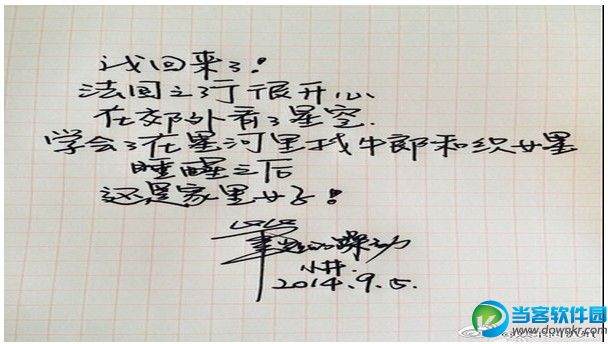 我回来了!
法国之行很开心
在郊外看了星空.
学会了在星河里找牛郎和织女星
睡醒之后
还是家里好!
躁动
小井.
2014.9.5.
当客软件园
www.downkr.com